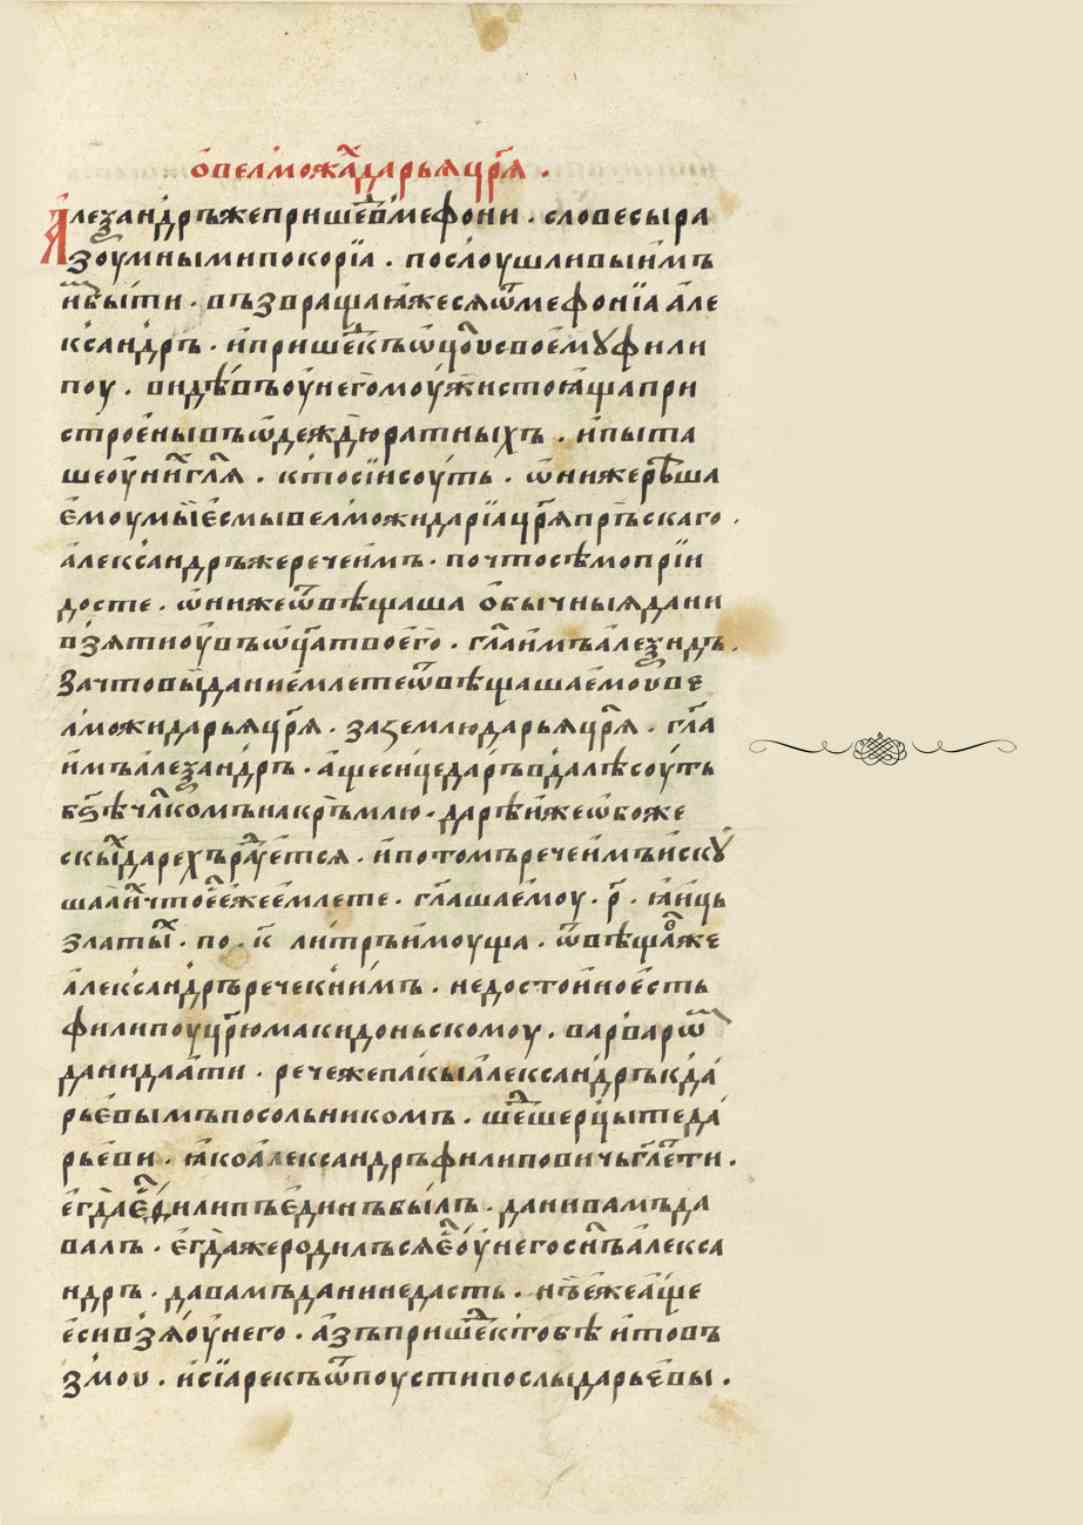 ѽ велможа́х дарьѧ цр҃ѧ .
Алеѯандръ же пришед в мефони . словесы ра
зоумными покорїа . послоушливы и҆мъ
и҆ быти . възвращаꙗ же сѧ ѿ мефонїа а҆ле
ксандръ . и҆ пришед къ ѡ҆ц҃оу своемꙋ фили
поу . видѣвъ оу҆ него моужи стоѧща при
строены въ ѡ҆деждю ратныхъ . и҆ пыта
ше оу҆ них гл҃ѧ . кто сїи соуть . ѡ҆ни же рѣша
е҆моу мы е҆смы велможи дарїа цр҃ѧ прьскаго .
а҆лександръ же рече и҆мъ . почто сѣмо прїи
досте . ѡ҆ни же ѿвѣщаша ѻ҆бычныѧ дани
взѧти оу҆ въ ѡ҆ц҃а твоего . гл҃а и҆мъ а҆леѯндъ .
За что вы дани е҆млете ѿвѣщаша е҆моу ве
лможи дарьѧ цр҃ѧ . за ѕемлю дарьѧ цр҃ѧ . гл҃а
и҆мъ а҆леѯандръ . а҆ще сице даръ вдалѣ соуть
бѕ҃ѣ чл҃комъ на кръмлю . дарѣи же ѡ҆ боже
скых дарехъ радуетсѧ . и҆ потомъ рече и҆мъ и҆скꙋ
шаа их что е҆с е҆же е҆млете . гл҃аша е҆моу . р҃ . ꙗ҆иць
златых . по . к҃ литръ и҆моуща . ѿвѣщал же
а҆лександръ рече к ним . недостоино е҆сть
филипоу цр҃ю макидоньскомоу . варваром
дани даати . рече же пакы а҆лександръ к да
рьевымъ посольникомъ . шед шерцыте да
рьеви . ꙗ҆ко а҆лександръ филиповичь гл҃ет ти .
е҆гда е҆с филипъ е҆динъ былъ . дани вамъ да
валъ . е҆гда же родилъ сѧ е҆с оу҆ него сн҃ъ а҆лекса
ндръ . да вамъ дани не дасть . нъ е҆же а҆ще
е҆си взѧ оу҆ него . а҆зъ пришед к тобѣ и҆ то въ
змоу . и҆ сїа рекъ ѿпоусти послы дарьевы .